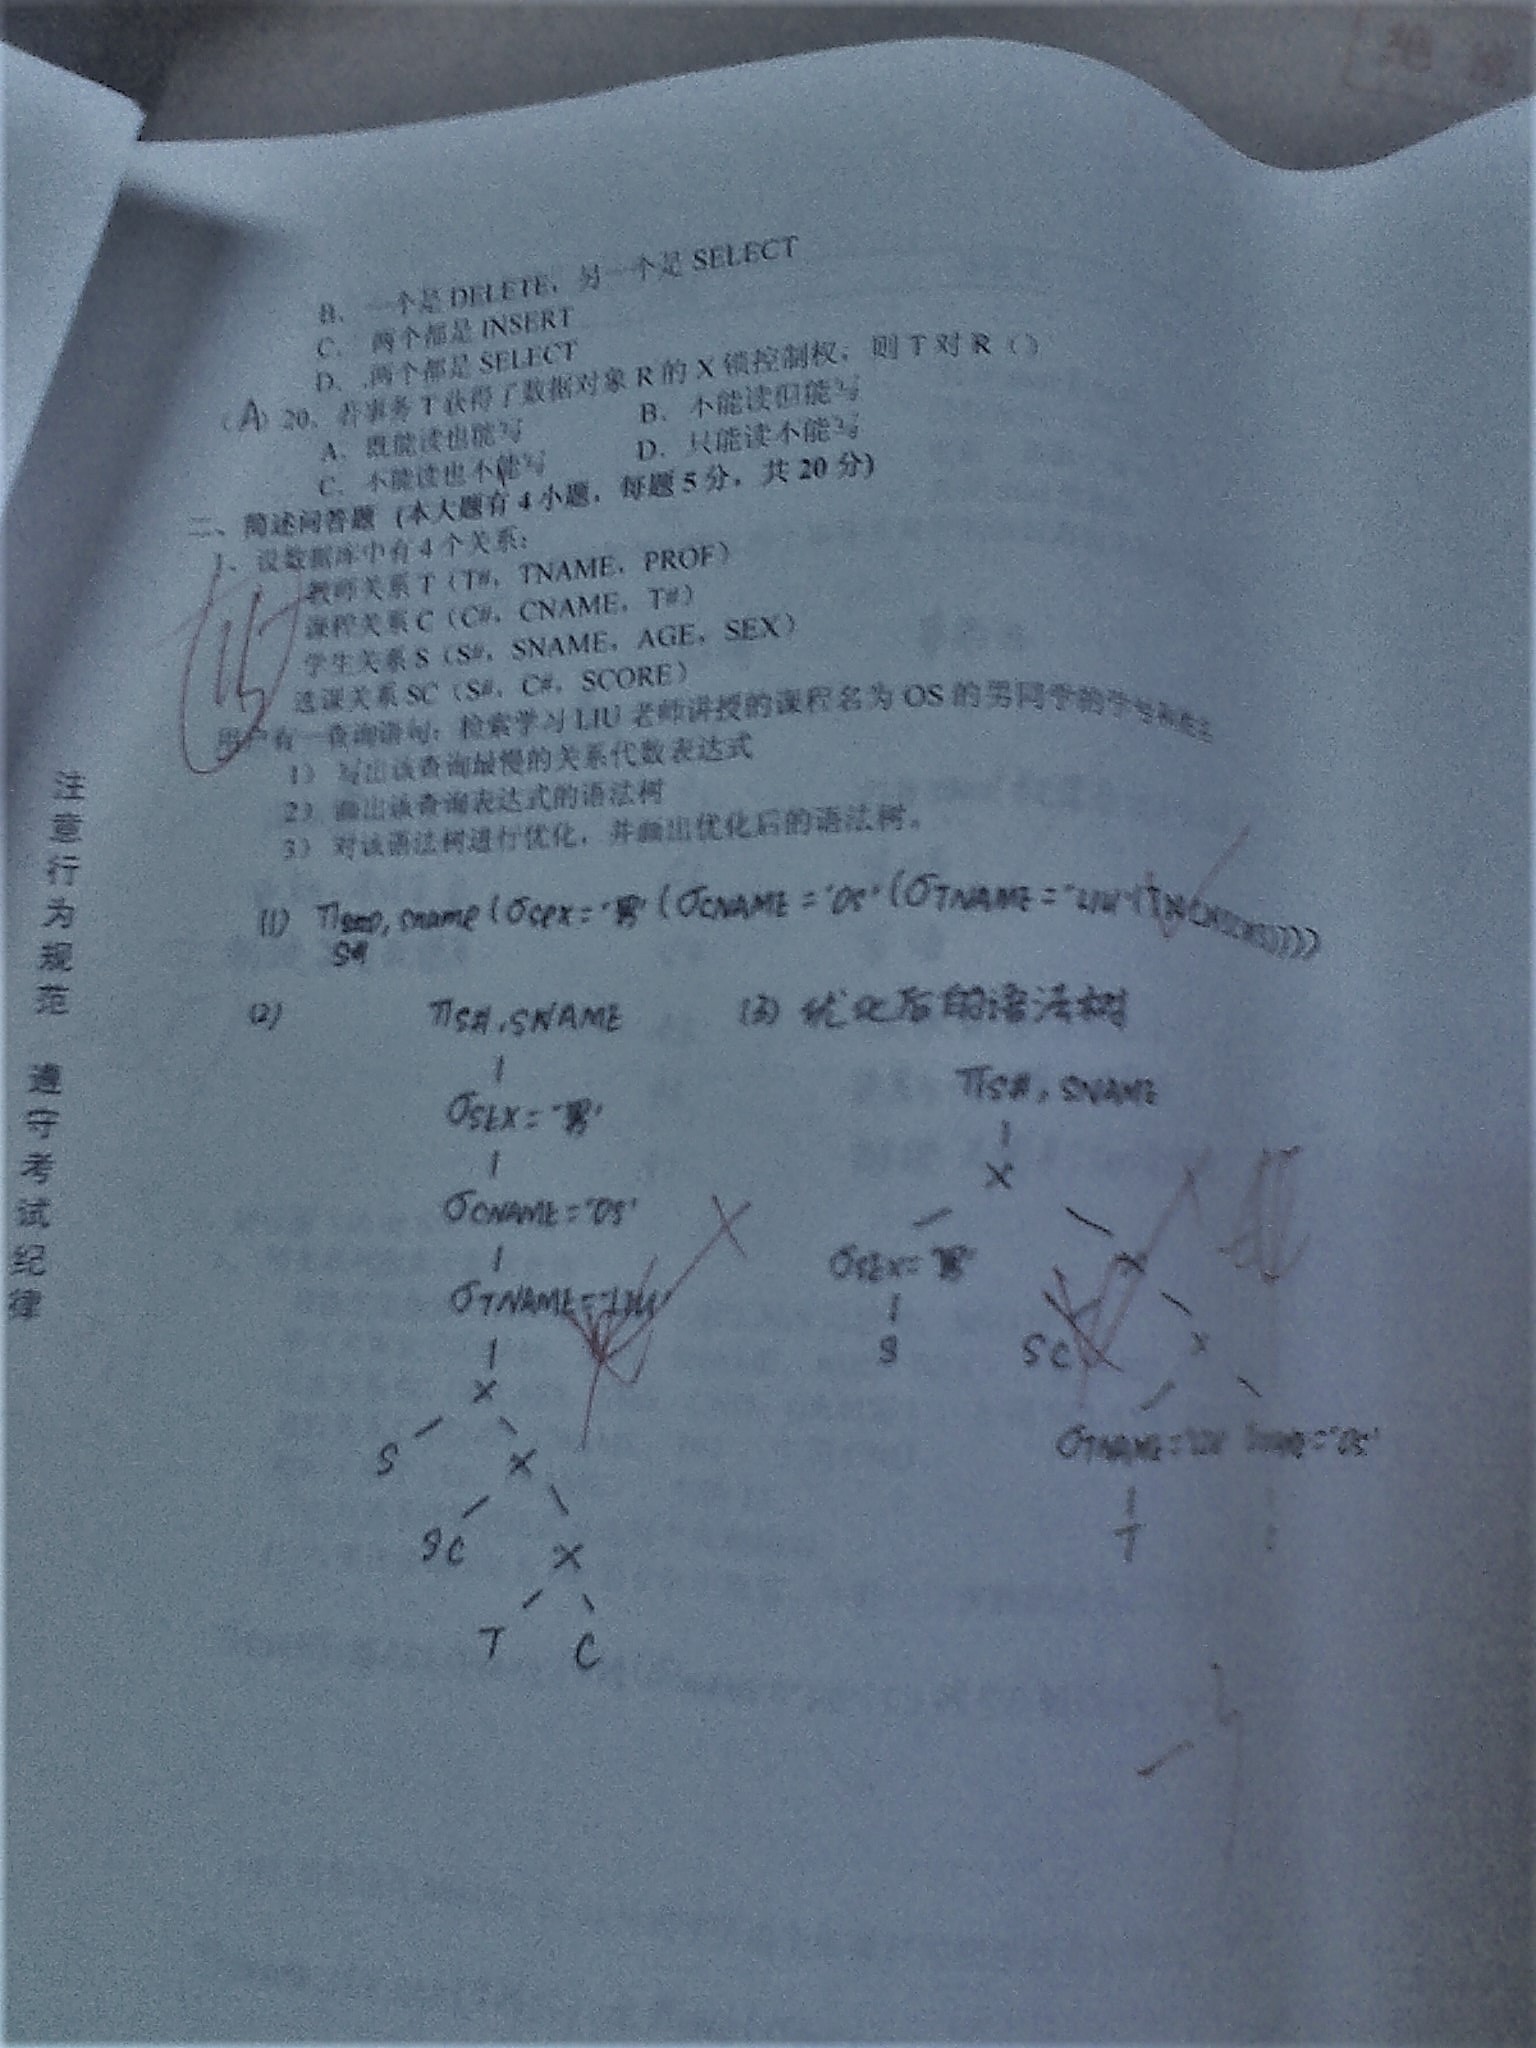 B、一个是 DELETE，另一个是 SELECT
C、两个都是 INSERT
D、两个都是 SELECT
（A）20、若事务 T 获得了数据对象 R 的 X 锁控制权，则 T 对 R（）
A、既能读也能写 B、不能读但能写
C、不能读也不能写 D、只能读不能写
二、简述问答题（本大题有 4 小题，每题 5 分，共 20 分）
1、设数据库中有 4 个关系：
教师关系 T（T#，TNAME，PROF）
课程关系 C（C#，CNAME，T#）
学生关系 S（S#，SNAME，AGE，SEX）
选课关系 SC（S#，C#，SCORE）
用户有一查询语句：检索学习 LIU 老师讲授的课程名为 OS 的男同学的学号和姓名
1）写出该查询最慢的关系代数表达式
2）画出该查询表达式的语法树
3）对该语法树进行优化，并画出优化后的语法树。
(1) π sname (σsex='男' (σCNAME='OS' (σTNAME='LIU'
S#
(2) πS#,SNAME (3) 优化后的语法树
πS#,SNAME
σSEX='男'
×
σCNAME='OS'
σSEX='男' ×
σTNAME='LIU'
S SC ×
×
S × σTNAME= ='OS'
SC × T
T C
注意行为规范 遵守考试纪律